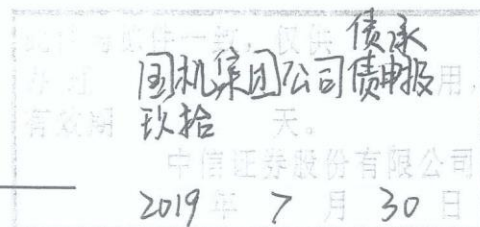 此件与原件一致，仅供 债承
办理 国机集团公司债申报 用，
有效期 玖拾 天。
中信证券股份有限公司
2019 年 7 月 30 日